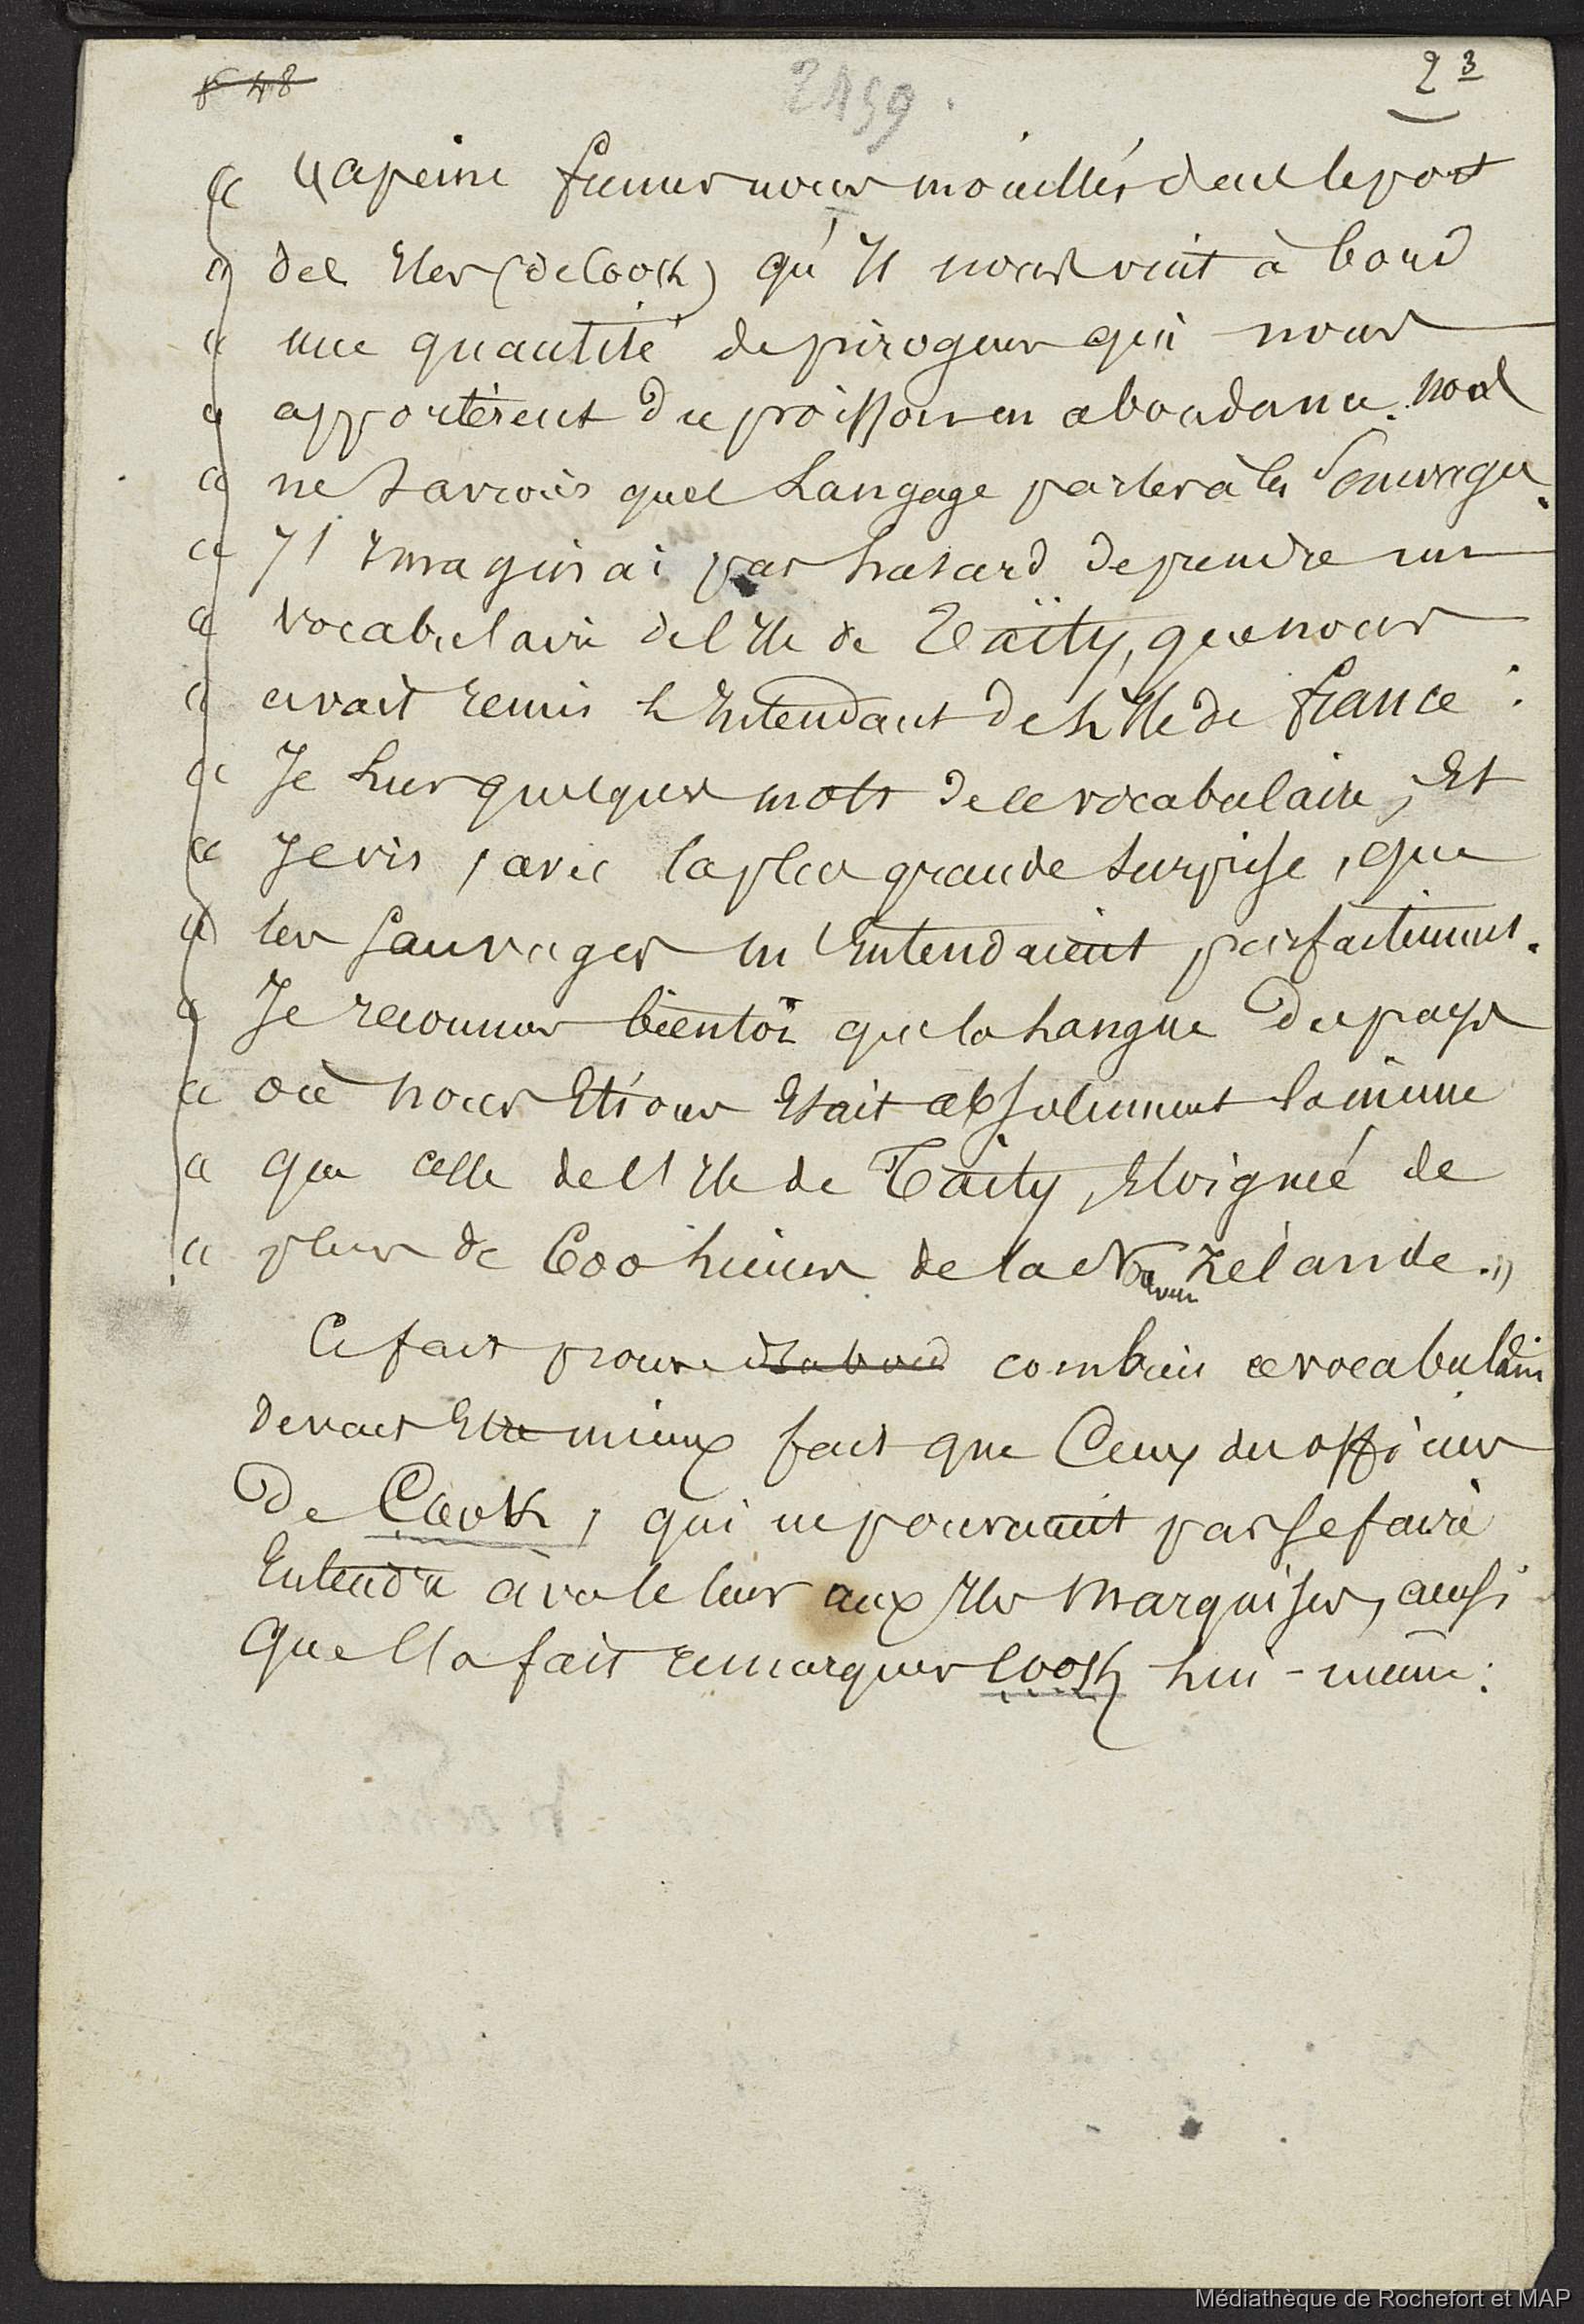 2459.
2 3
« à peine fumes nous mouillés dans le port
« des Iles (de Cook) qu'Il nous vint à bord
« une quantité de pirogues qui nous
« apportèrent du poisson en abondance. nous
« ne savions quel Langage parler à ces Sauvages.
« J'Imaginai par hasard de prendre un
« vocabulaire de l'Ile de Taïty, que nous
« avait remis l'Intendant de L'Ile de france :
« Je Lus quelques mots de ce vocabulaire, Et
« Je vis, avec la plus grande surprise, que
« les Sauvages m'Entendaient parfaitement.
« Je reconnus bientôt que la Langue du pays
« où nous Etions Etait absolument la même
« que celle de l'Ile de Taïty, Eloignée de
« plus de 600 Lieues de la Nouvelle Zélande. »
Ce fait prouve d'abord combien ce vocabulaire
devait Etre mieux fait que Ceux des officiers
de Cook, qui ne pouvaient pas se faire
Entendre à vaste leurs aux Iles Marquises, ainsi
que l'a fait remarquer Cook Lui-même :
Médiathèque de Rochefort et MAP